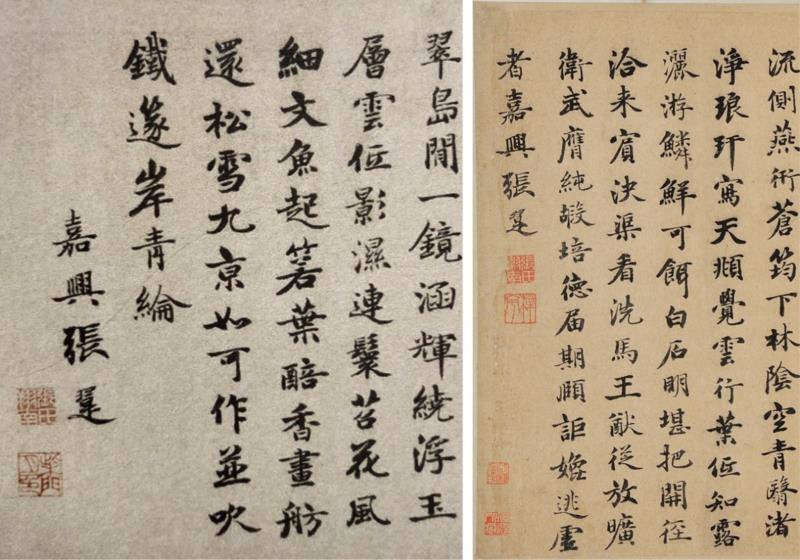 翠島閒一鏡涵輝繞浮玉
層雲低影濕連鬟苕花風
細文魚起箬葉醅香畫舫
還松雪九京如可作並吹
鐵篴岸青綸
嘉興張
流側燕衎蒼筠下林陰空青翳渚
淨琅玕寫天頫覺雲行葉低知露
灑游鱗鮮可餌白石明堪把開徑
洽来賓決渠看洗馬王猷從放曠
衛武膺純嘏培德届期頤詎媿逃虛
者嘉興張